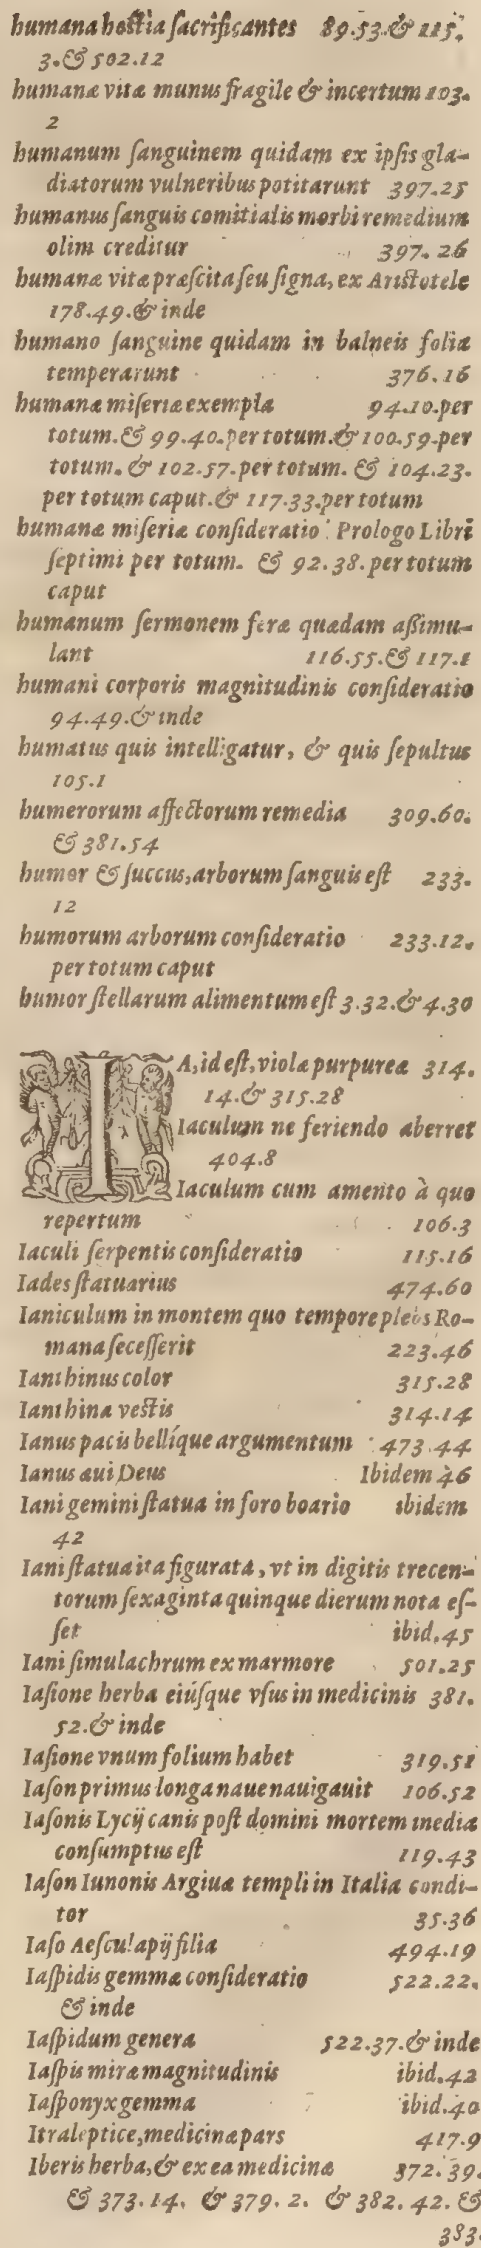 humana hostia ſacrificantes 89.53.& 115.
3.& 502.12
humanæ vitæ munus fragile & incertum 103.
2
humanum ſanguinem quidam ex ipſis gla-
diatorum vulneribus potitarunt 397.25
humanus ſanguis comitialis morbi remedium
olim creditur 397.26
humanæ vitæ præſcita ſeu ſigna, ex Ariſtotele
178.49.& inde
humano ſanguine quidam in balneis ſolia
temperarunt 376.16
humanæ miſeriæ exempla 94.10.per
totum.& 99.40.per totum.& 100.59.per
totum. & 102.57.per totum. & 104.23.
per totum caput.& 117.33.per totum
humanæ miſeriæ conſideratio Prologo Libri
ſeptimi per totum. & 92.38.per totum
caput
humanum ſermonem feræ quædam aſſimu-
lant 116.55.& 117.1
humani corporis magnitudinis conſideratio
94.49.& inde
humatus quis intelligatur, & quis ſepultus
105.1
humerorum affectorum remedia 309.60.
& 381.54
humor & ſuccus, arborum ſanguis eſt 233.
12
humorum arborum conſideratio 233.12.
per totum caput
humor ſtellarum alimentum eſt 3.32.& 4.30
IA, id eſt, violæ purpureæ 314.
14.& 315.28
Iaculum ne feriendo aberret
404.8
Iaculum cum amento à quo
repertum 106.3
Iaculi ſerpentis conſideratio 115.16
Iades ſtatuarius 474.60
Ianiculum in montem quo tempore plebs Ro-
mana ſeceſſerit 223.46
Ianthinus color 315.28
Ianthina veſtis 314.14
Ianus pacis bellíque argumentum 473.44
Ianus aui Deus Ibidem 46
Iani gemini ſtatua in foro boario ibidem
42
Iani ſtatua ita figurata, vt in digitis trecen-
torum ſexaginta quinque dierum nota eſ-
ſet ibid.45
Iani ſimulachrum ex marmore 501.25
Iaſione herba eiúſque vſus in medicinis 381.
52.& inde
Iaſione vnum folium habet 319.51
Iaſon primus longa naue nauigauit 106.52
Iaſonis Lycij canis poſt domini mortem inedia
conſumptus eſt 119.43
Iaſon Iunonis Argiuæ templi in Italia condi-
tor 35.36
Iaſo Aeſculapij filia 494.19
Iaſpidis gemmæ conſideratio 522.22.
& inde
Iaſpidum genera 522.37.& inde
Iaſpis miræ magnitudinis ibid.42
Iaſponyx gemma ibid.40
Itraleptice, medicinæ pars 417.9
Iberis herba, & ex ea medicina 372.39.
& 373.14. & 379.2. & 382.42. &
383.